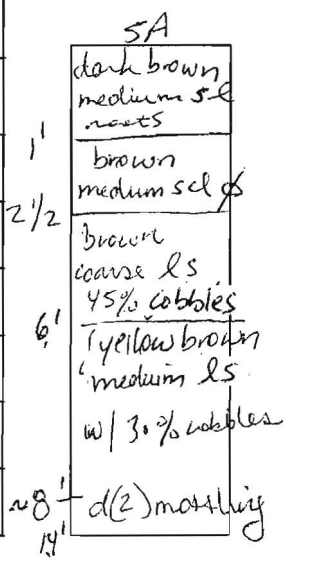 5A
dark brown
medium sl
roots
1'
brown
medium scl ø
2 1/2'
brown
coarse ls
45% cobbles
6'
yellow brown
medium ls
w/ 30% cobbles
~8' d(2) mottling
14'